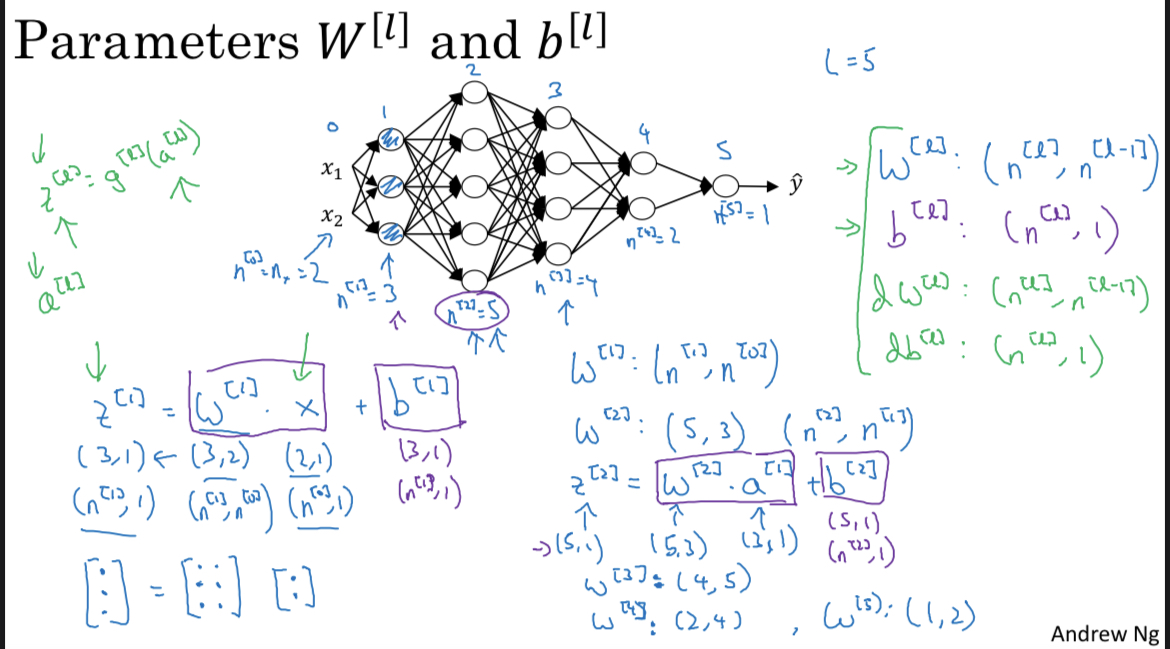 Parameters W^[l] and b^[l]
L = 5
0 1 2 3 4 5
x₁
x₂
ŷ
n^[0] = n_x = 2
n^[1] = 3
n^[2] = 5
n^[3] = 4
n^[4] = 2
n^[5] = 1
z^[l] = g^[l](a^[l])
a^[l]
W^[l] : (n^[l], n^[l-1])
b^[l] : (n^[l], 1)
dW^[l] : (n^[l], n^[l-1])
db^[l] : (n^[l], 1)
z^[1] = W^[1] · x + b^[1]
(3,1) ← (3,2) (2,1) (3,1)
(n^[1], 1) (n^[1], n^[0]) (n^[0], 1) (n^[1], 1)
[⋮] = [⋮ ⋮] [:]
W^[1] : (n^[1], n^[0])
W^[2] : (5, 3) (n^[2], n^[1])
z^[2] = W^[2] · a^[1] + b^[2]
→ (5,1) (5,3) (3,1) (5,1)
(n^[2], 1)
W^[3] : (4, 5)
W^[4] : (2,4) , W^[5] : (1,2)
Andrew Ng